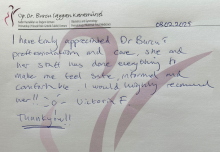 Op. Dr. Burcu Saygan Karamürsel
08.02.2023
I have truly appreciated Dr Burcu's
professionalism and care. She and
her staff has done everything to
make me feel safe, informed and
comfortable. I would highly recommend
her!! :o) - Victoria F.
Thank you!!